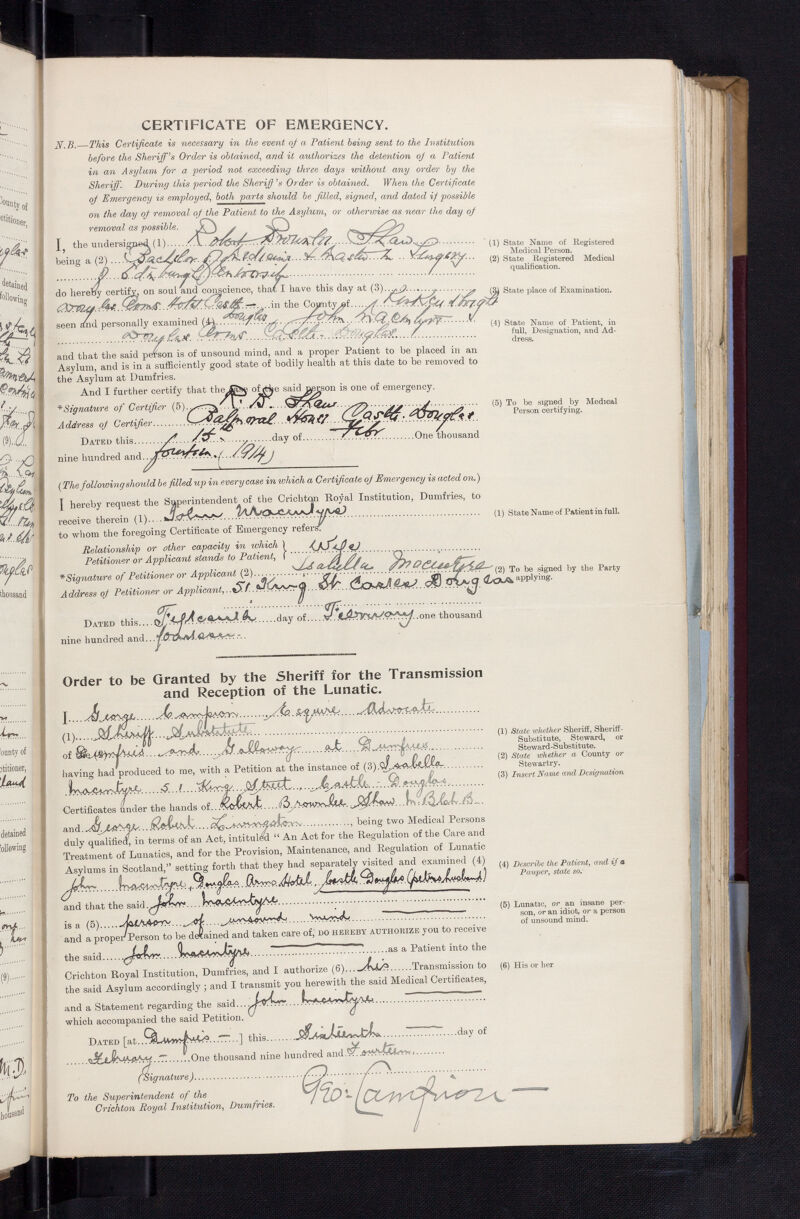 CERTIFICATE OF EMERGENCY.
N.B.—This Certificate is necessary in the event of a Patient being sent to the Institution
before the Sheriff's Order is obtained, and it authorizes the detention of a Patient
in an Asylum for a period not exceeding three days without any order by the
Sheriff. During this period the Sheriff's Order is obtained. When the Certificate
of Emergency is employed, both parts should be filled, signed, and dated if possible
on the day of removal of the Patient to the Asylum, or otherwise as near the day of
removal as possible.
I, the undersigned (1) Robert Brownlee Shaw
being a (2) Bachelor of Medicine & Master in Surgery
of Edinburgh University
do hereby certify, on soul and conscience, that I have this day at (3)
Douglas Arms Hotel Castle - in the County of Kirkcudbright
Douglas
seen and personally examined (4) John Macintyre
Douglas Arms Castle Douglas
and that the said person is of unsound mind, and a proper Patient to be placed in an
Asylum, and is in a sufficiently good state of bodily health at this date to be removed to
the Asylum at Dumfries.
And I further certify that the case of the said person is one of emergency.
*Signature of Certifier (5) R. B. Shaw
Address of Certifier Balmoral House Castle Douglas
DATED this 15th day of Febr One thousand
nine hundred and fourteen (1914)
(1) State Name of Registered
Medical Person.
(2) State Registered Medical
qualification.
(3) State place of Examination.
(4) State Name of Patient, in
full, Designation, and Ad-
dress.
(5) To be signed by Medical
Person certifying.
(The following should be filled up in every case in which a Certificate of Emergency is acted on.)
I hereby request the Superintendent of the Crichton Royal Institution, Dumfries, to
receive therein (1) John Macintyre
to whom the foregoing Certificate of Emergency refers.
Relationship or other capacity in which
Petitioner or Applicant stands to Patient, } Wife
*Signature of Petitioner or Applicant (2) Isabella Macintyre
Address of Petitioner or Applicant, 51 King St Castle Douglas
DATED this Fifteenth day of February one thousand
nine hundred and fourteen
(1) State Name of Patient in full.
(2) To be signed by the Party
applying.
Order to be Granted by the Sheriff for the Transmission
and Reception of the Lunatic.
I George Campion Esquire Advocate
(1) Sheriff Substitute
of Dumfries and Galloway at Dumfries
having had produced to me, with a Petition at the instance of (3) Isabella
Macintyre 51 King Street Castle Douglas
Certificates under the hands of Robert Brownlee Shaw M.B.Ch.B.
and George Robert Livingston, being two Medical Persons
duly qualified, in terms of an Act, intituled "An Act for the Regulation of the Care and
Treatment of Lunatics, and for the Provision, Maintenance, and Regulation of Lunatic
Asylums in Scotland," setting forth that they had separately visited and examined (4)
John Macintyre, Douglas Arms Hotel, Castle Douglas (petrs husband)
and that the said John Macintyre
is a (5) person of unsound mind
and a proper Person to be detained and taken care of, DO HEREBY AUTHORIZE you to receive
the said John Macintyre as a Patient into the
Crichton Royal Institution, Dumfries, and I authorize (6) his Transmission to
the said Asylum accordingly; and I transmit you herewith the said Medical Certificates,
and a Statement regarding the said John Macintyre
which accompanied the said Petition.
DATED [at Dumfries —] this Sixteenth day of
February — One thousand nine hundred and Fourteen
(Signature)
Geo: Campion —
To the Superintendent of the
Crichton Royal Institution, Dumfries.
(1) State whether Sheriff, Sheriff-
Substitute, Steward, or
Steward-Substitute.
(2) State whether a County or
Stewartry.
(3) Insert Name and Designation
(4) Describe the Patient, and if a
Pauper, state so.
(5) Lunatic, or an insane per-
son, or an idiot, or a person
of unsound mind.
(6) His or her